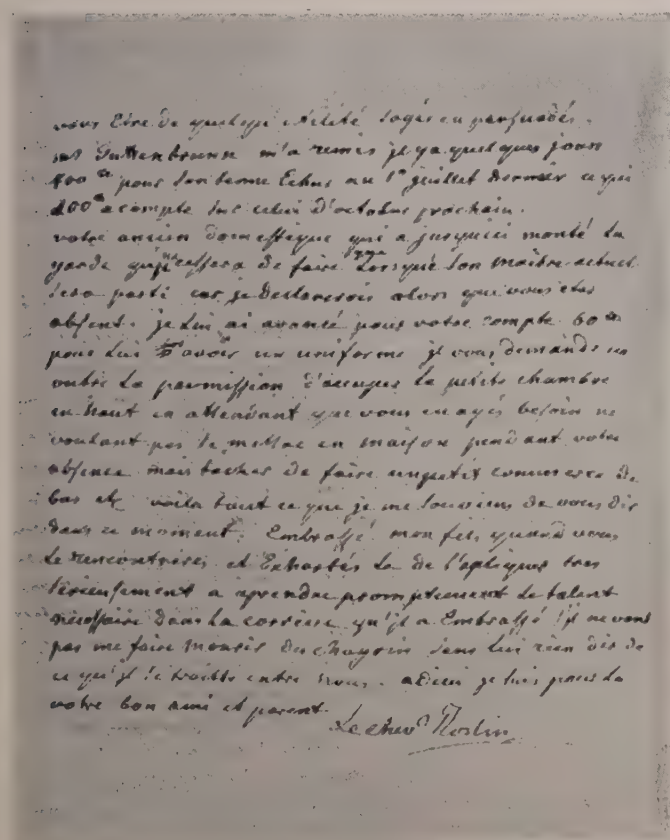 vous Etre de quelque utilité soyés en persuadés.
mr Guttenbrunn m'a remis il y a quelques jours
400# pour son terme Echus au 1er juillet dernier et
200# acompte sur celui d'octobre prochain.
votre ancien domestique qui a jusqu'ici monté la
garde cessera de faire lorsque son maitre actuel
sera parti car je declarerois alors que vous etes
absent. je lui ai avancé pour votre compte 60#
pour lui avoir un uniforme je vous demande en
outre la permission d'occuper la petite chambre
en haut en attendant que vous en ayés besoin ne
voulant pas se mettre en maison pendant votre
absence mais tacher de faire un petit commerce de
bas et voila tout ce que je me souviens de vous dir
dans ce moment. Embrassé mon fils quand vous
le rencontrerés et Exhortés le de s'apliquer tres
serieusement a aprendre promptement le talent
nécessaire dans la carriere qu'il a Embrassé s'il ne veut
pas me faire mourir de chagrin sans lui rien dir de
ce qu'il se traitte entre nous. adieu je suis pour la
votre bon ami et parent.
Le chevr Roslin